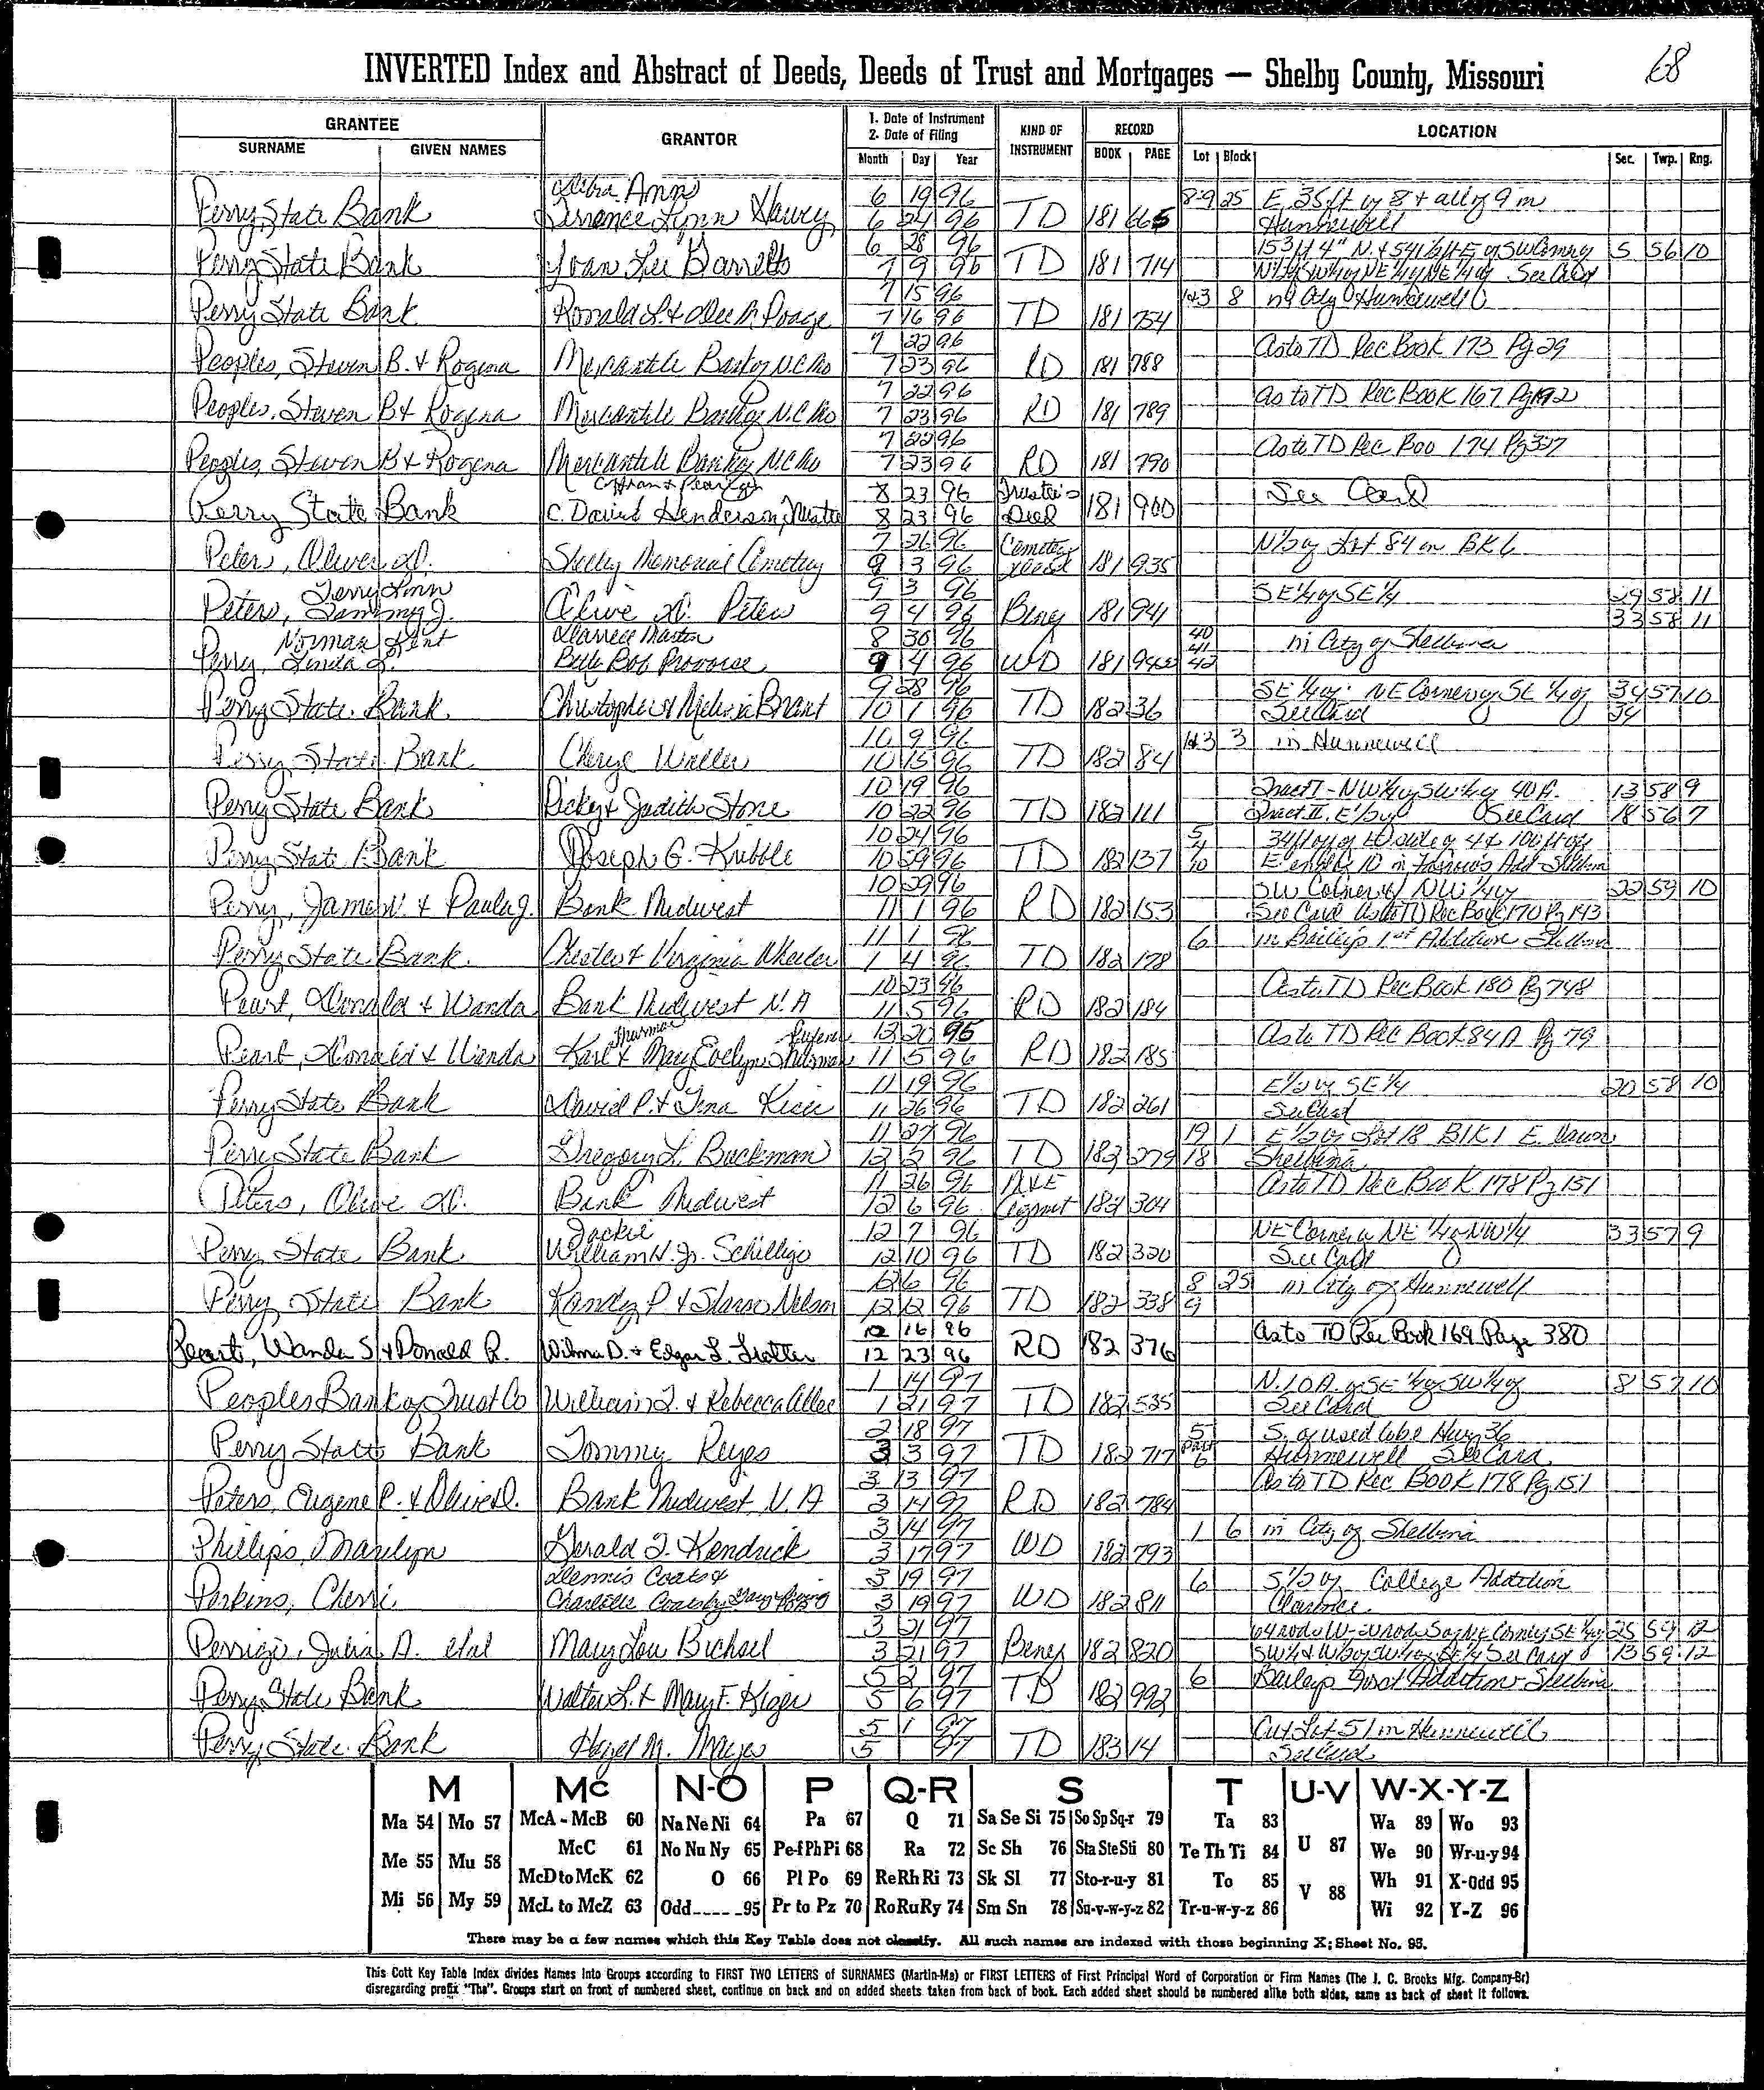 68
INVERTED Index and Abstract of Deeds, Deeds of Trust and Mortgages — Shelby County, Missouri
GRANTEE
SURNAME GIVEN NAMES
GRANTOR
1. Date of Instrument
2. Date of Filing
Month Day Year
KIND OF INSTRUMENT
RECORD
BOOK PAGE
LOCATION
Lot Block Sec. Twp. Rng.
Ann 6 19 96 8-9 25 E 35 ft of 8 + all of 9 in
Perry State Bank Terrence Lynn 6 24 96 TD 181 665 Hunnewell
6 28 96 5 56 10
Perry State Bank Joan Lee 7 9 96 TD 181 714 See Card
7 15 96 1+3 8 in City Hunnewell
Perry State Bank Ronald L. + Dee A. Poage 7 16 96 TD 181 754
7 22 96 As to TD Rec Book 173 Pg 29
Peoples, Steven B. + Rogena Mercantile Bank of N.C. Mo 7 23 96 RD 181 788
7 22 96 As to TD Rec Book 167 Pg 192
Peoples, Steven B + Rogena Mercantile Bank of N.C. Mo 7 23 96 RD 181 789
7 22 96 As to TD Rec Boo 174 Pg 327
Peoples, Steven B + Rogena Mercantile Bank of N.C. Mo 7 23 96 RD 181 790
8 23 96 Trustee's See Card
Perry State Bank C. David Henderson, Trustee 8 23 96 Deed 181 900
7 26 96 Cemetery N 1/2 of Lot 84 in BK 6
Peters, Olive D. Shelby Memorial Cemetery 9 3 96 Deed 181 935
Terry Lynn 9 3 96 SE 1/4 of SE 1/4 29 58 11
Peters, Tammy J. Olive D. Peters 9 4 96 Beney 181 941 33 58 11
Norman Kent Darrell Martin 8 30 96 40 41 in City of Shelbina
Perry, Linda L. Bob 9 4 96 WD 181 942 42
9 28 96 SE 1/4 of NE Corner of SE 1/4 of 34 57 10
Perry State Bank Christopher + Melissa Brant 10 1 96 TD 182 36 See Card 34
10 9 96 1+3 3 in Hunnewell
Perry State Bank Cheryl Waller 10 15 96 TD 182 84
10 19 96 Tract I - NW 1/4 of SW 1/4 40 A. 13 58 9
Perry State Bank Rickey + Judith Stone 10 22 96 TD 182 111 Tract II. E 1/2 of See Card 18 56 7
10 24 96 5 4
Perry State Bank Joseph G. Kubble 10 29 96 TD 182 137 10 Add Shelbina
10 29 96 SW Corner of NW 1/4 of 22 59 10
Perry, James W. + Paula J. Bank Midwest 11 1 96 RD 182 153 See Card As to TD Rec Book 170 Pg 143
11 1 96 6 in Bailey's 1st Addition Shelbina
Perry State Bank Chester + Virginia Wheeler 1 4 96 TD 182 178
10 23 96 As to TD Rec Book 180 Pg 748
Peart, Donald + Wanda Bank Midwest N.A 11 5 96 RD 182 184
Thurman 12 20 95 As to TD Rec Book 84A Pg 79
Peart, Donald + Wanda Karl + Mary Evelyn Thurman 11 5 96 RD 182 185
11 19 96 E 1/2 of SE 1/4 20 58 10
Perry State Bank David P. + Tena 11 26 96 TD 182 261 See Card
11 27 96 19 1 E 1/2 of Lot 18 Blk 1 E.
Perry State Bank Gregory L. Buckman 12 2 96 TD 182 279 18 Shelbina
11 26 96 As to TD Rec Book 178 Pg 151
Peters, Olive D. Bank Midwest 12 6 96 182 304
Jackie 12 7 96 NE Corner of NE 1/4 of NW 1/4 33 57 9
Perry State Bank William H. Jr. 12 10 96 TD 182 320 See Card
12 6 96 8 25 in City of Hunnewell
Perry State Bank Randy P + Sharon Nelson 12 12 96 TD 182 338 9
12 16 96 As to TD Rec Book 169 Page 380
Peart, Wanda S + Donald R. Wilma D. + Edgar L. Trotter 12 23 96 RD 182 376
1 14 97 N. 10 A. of SE 1/4 of SW 1/4 of 8 57 10
Peoples Bank of Trust Co William T. + Rebecca Allee 1 21 97 TD 182 535 See Card
2 18 97 5 S. of used to be Hwy 36
Perry State Bank Tommy Reyes 3 3 97 TD 182 717 Part 6 Hunnewell See Card
3 13 97 As to TD Rec Book 178 Pg 151
Peters, Eugene P. + Olive D. Bank Midwest, N.A 3 14 97 RD 182 784
3 14 97 1 6 in City of Shelbina
Phillips, Marilyn Gerald T. Kendrick 3 17 97 WD 182 793
Dennis Coats + 3 19 97 6 S 1/2 of College Addition
Perkins, Cherri 3 19 97 WD 182 811 Clarence
3 21 97 25 59 12
Perrigo, Julia A. etal Mary Lou 3 21 97 Beney 182 820 See Card 13 59 12
5 2 97 6 Bailey's First Addition Shelbina
Perry State Bank Walter L. + Mary F. Kiger 5 6 97 TD 182 992
5 1 97 Out Lot 51 in Hunnewell
Perry State Bank Hazel M. Mayes 5 97 TD 183 14 See Card
M Mc N-O P Q-R S T U-V W-X-Y-Z
Ma 54 Mo 57 McA - McB 60 Na Ne Ni 64 Pa 67 Q 71 Sa Se Si 75 So Sp Sq-r 79 Ta 83 Wa 89 Wo 93
McC 61 No Nu Ny 65 Pe-f Ph Pi 68 Ra 72 Sc Sh 76 Sta Ste Sti 80 Te Th Ti 84 U 87 We 90 Wr-u-y 94
Me 55 Mu 58 McD to McK 62 O 66 Pl Po 69 Re Rh Ri 73 Sk Sl 77 Sto-r-u-y 81 To 85 Wh 91 X-Odd 95
Mi 56 My 59 McL to McZ 63 Odd---- -95 Pr to Pz 70 Ro Ru Ry 74 Sm Sn 78 Su-v-w-y-z 82 Tr-u-w-y-z 86 V 88 Wi 92 Y-Z 96
There may be a few names which this Key Table does not classify. All such names are indexed with those beginning X; Sheet No. 95.
This Cott Key Table Index divides Names into Groups according to FIRST TWO LETTERS of SURNAMES (Martin-Ma) or FIRST LETTERS of First Principal Word of Corporation or Firm Names (The J. C. Brooks Mfg. Company-Br)
disregarding prefix "The". Groups start on front of numbered sheet, continue on back and on added sheets taken from back of book. Each added sheet should be numbered alike both sides, same as back of sheet it follows.